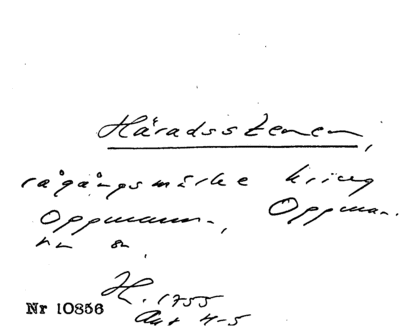 Häradsstenen,
rågångsmärke kring
Oppmanna-, Oppman.
nr 8.
H. 1755
Akt 4-5
Nr 10856